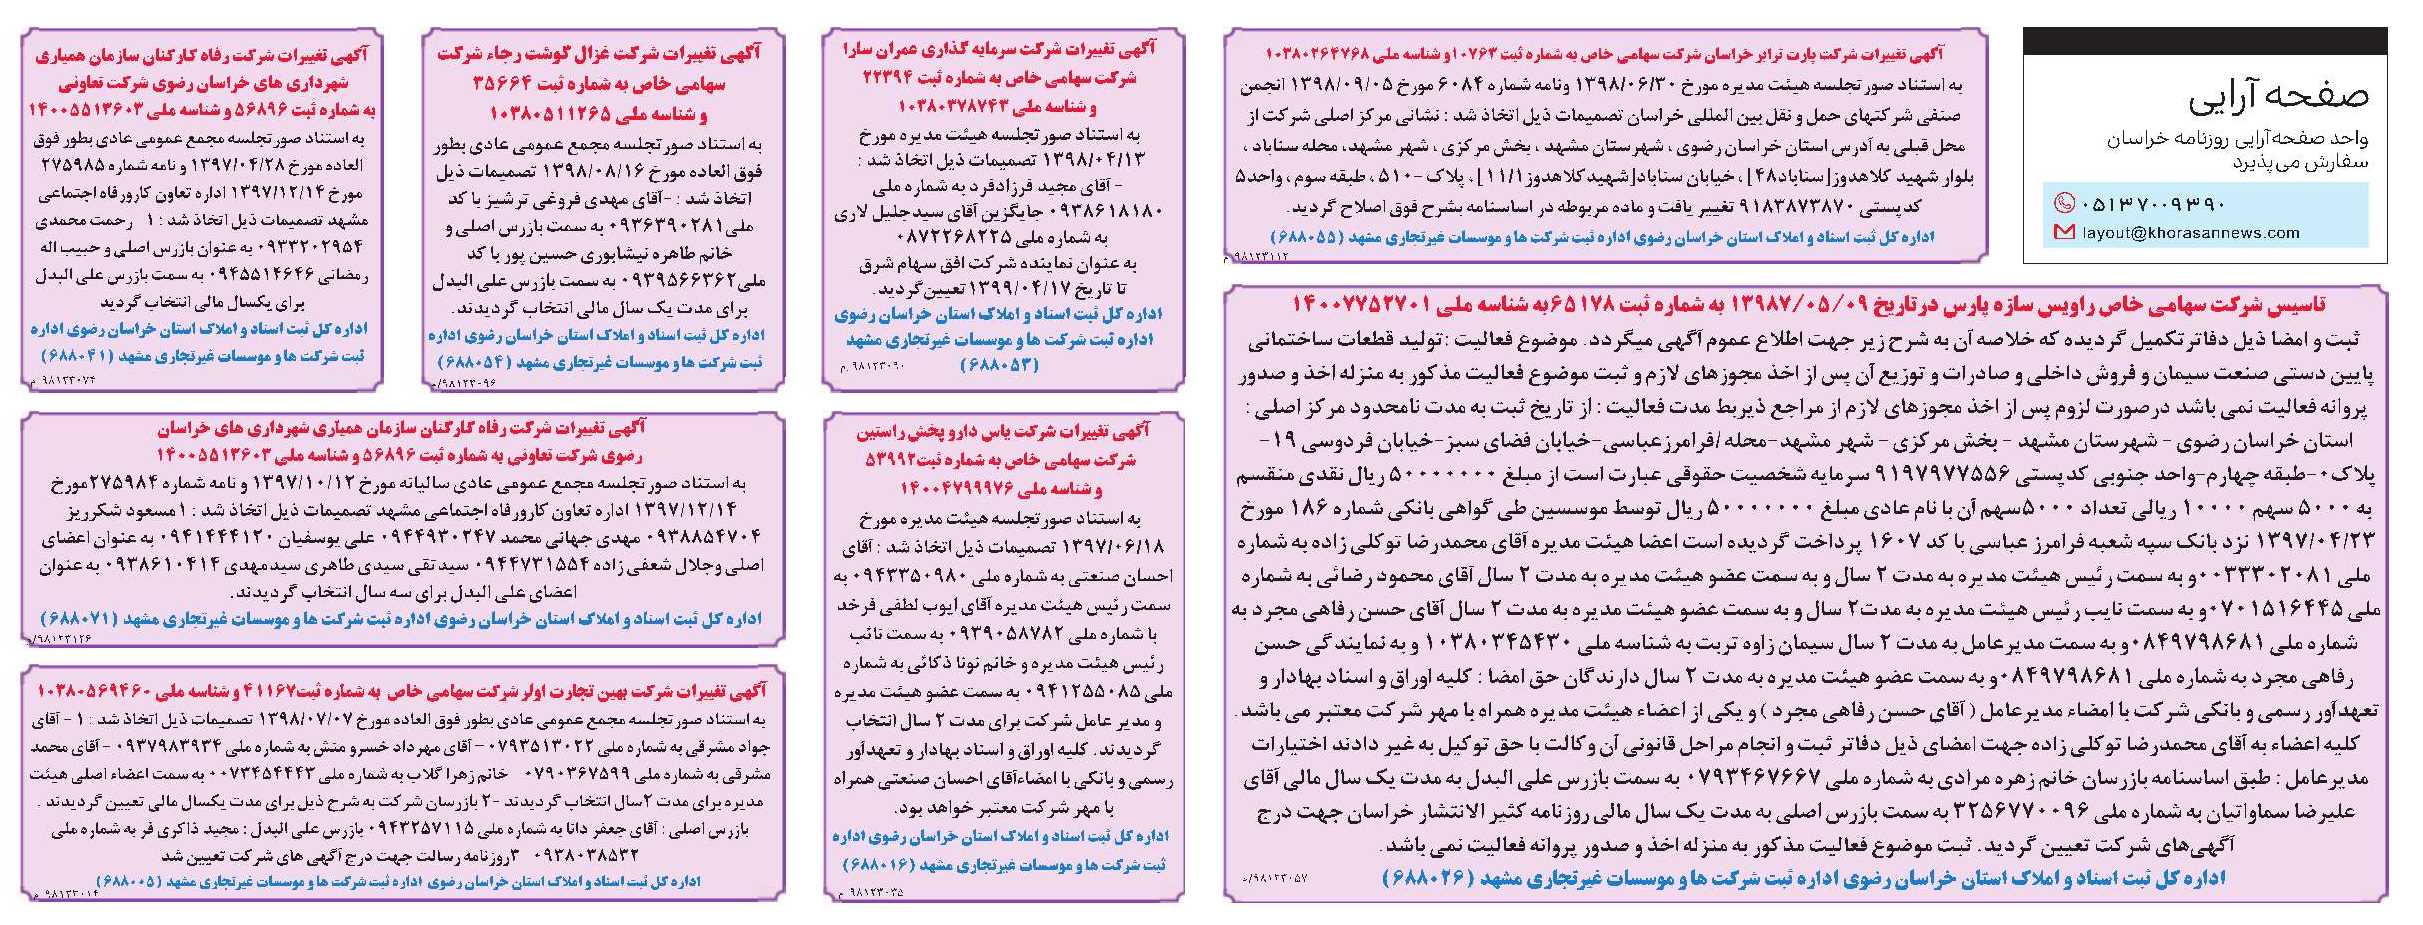 صفحه آرایی
واحد صفحه‌آرایی روزنامه خراسان
سفارش می‌پذیرد
۰۵۱۳۷۰۰۹۳۹۰
layout@khorasannews.com
آگهی تغییرات شرکت پارت ترابر خراسان شرکت سهامی خاص به شماره ثبت ۱۰۷۶۳و شناسه ملی ۱۰۳۸۰۲۶۴۷۶۸
به استناد صورتجلسه هیئت مدیره مورخ ۱۳۹۸/۰۶/۳۰ ونامه شماره ۶۰۸۴ مورخ ۱۳۹۸/۰۹/۰۵ انجمن
صنفی شرکتهای حمل و نقل بین المللی خراسان تصمیمات ذیل اتخاذ شد : نشانی مرکز اصلی شرکت از
محل قبلی به آدرس استان خراسان رضوی ، شهرستان مشهد ، بخش مرکزی ، شهر مشهد، محله سناباد ،
بلوار شهید کلاهدوز[سناباد۴۸] ، خیابان سناباد[شهیدکلاهدوز۱۱/۱] ، پلاک -۵۱۰ ، طبقه سوم ، واحد۵
کدپستی ۹۱۸۳۸۷۳۸۷۰ تغییر یافت و ماده مربوطه در اساسنامه بشرح فوق اصلاح گردید.
اداره کل ثبت اسناد و املاک استان خراسان رضوی اداره ثبت شرکت ها و موسسات غیرتجاری مشهد (۶۸۸۰۵۵)
۹۸۱۲۳۱۱۲ م
تاسیس شرکت سهامی خاص راویس سازه پارس درتاریخ ۱۳۹۸۷/۰۵/۰۹ به شماره ثبت ۶۵۱۷۸به شناسه ملی ۱۴۰۰۷۷۵۲۷۰۱
ثبت و امضا ذیل دفاتر تکمیل گردیده که خلاصه آن به شرح زیر جهت اطلاع عموم آگهی میگردد. موضوع فعالیت :تولید قطعات ساختمانی
پایین دستی صنعت سیمان و فروش داخلی و صادرات و توزیع آن پس از اخذ مجوزهای لازم و ثبت موضوع فعالیت مذکور به منزله اخذ و صدور
پروانه فعالیت نمی باشد درصورت لزوم پس از اخذ مجوزهای لازم از مراجع ذیربط مدت فعالیت : از تاریخ ثبت به مدت نامحدود مرکز اصلی :
استان خراسان رضوی - شهرستان مشهد - بخش مرکزی - شهر مشهد-محله /فرامرزعباسی-خیابان فضای سبز-خیابان فردوسی ۱۹-
پلاک۰-طبقه چهارم-واحد جنوبی کدپستی ۹۱۹۷۹۷۷۵۵۶ سرمایه شخصیت حقوقی عبارت است از مبلغ ۵۰۰۰۰۰۰۰ ریال نقدی منقسم
به ۵۰۰۰ سهم ۱۰۰۰۰ ریالی تعداد ۵۰۰۰سهم آن با نام عادی مبلغ ۵۰۰۰۰۰۰۰ ریال توسط موسسین طی گواهی بانکی شماره ۱۸۶ مورخ
۱۳۹۷/۰۴/۲۳ نزد بانک سپه شعبه فرامرز عباسی با کد ۱۶۰۷ پرداخت گردیده است اعضا هیئت مدیره آقای محمدرضا توکلی زاده به شماره
ملی ۰۰۳۳۳۰۲۰۸۱و به سمت رئیس هیئت مدیره به مدت ۲ سال و به سمت عضو هیئت مدیره به مدت ۲ سال آقای محمود رضائی به شماره
ملی ۰۷۰۱۵۱۶۴۴۵و به سمت نایب رئیس هیئت مدیره به مدت۲ سال و به سمت عضو هیئت مدیره به مدت ۲ سال آقای حسن رفاهی مجرد به
شماره ملی ۰۸۴۹۷۹۸۶۸۱و به سمت مدیرعامل به مدت ۲ سال سیمان زاوه تربت به شناسه ملی ۱۰۳۸۰۳۴۵۴۳۰ و به نمایندگی حسن
رفاهی مجرد به شماره ملی ۰۸۴۹۷۹۸۶۸۱و به سمت عضو هیئت مدیره به مدت ۲ سال دارندگان حق امضا : کلیه اوراق و اسناد بهادار و
تعهدآور رسمی و بانکی شرکت با امضاء مدیرعامل ( آقای حسن رفاهی مجرد ) و یکی از اعضاء هیئت مدیره همراه با مهر شرکت معتبر می باشد.
کلیه اعضاء به آقای محمدرضا توکلی زاده جهت امضای ذیل دفاتر ثبت و انجام مراحل قانونی آن وکالت با حق توکیل به غیر دادند اختیارات
مدیرعامل : طبق اساسنامه بازرسان خانم زهره مرادی به شماره ملی ۰۷۹۳۴۶۷۶۶۷ به سمت بازرس علی البدل به مدت یک سال مالی آقای
علیرضا سماواتیان به شماره ملی ۳۲۵۶۷۷۰۰۹۶ به سمت بازرس اصلی به مدت یک سال مالی روزنامه کثیر الانتشار خراسان جهت درج
آگهی‌های شرکت تعیین گردید. ثبت موضوع فعالیت مذکور به منزله اخذ و صدور پروانه فعالیت نمی باشد.
اداره کل ثبت اسناد و املاک استان خراسان رضوی اداره ثبت شرکت ها و موسسات غیرتجاری مشهد (۶۸۸۰۲۶)
۹۸۱۲۳۰۵۷/م
آگهی تغییرات شرکت سرمایه گذاری عمران سارا
شرکت سهامی خاص به شماره ثبت ۲۲۳۹۴
و شناسه ملی ۱۰۳۸۰۳۷۸۷۴۳
به استناد صورتجلسه هیئت مدیره مورخ
۱۳۹۸/۰۴/۱۳ تصمیمات ذیل اتخاذ شد :
- آقای مجید فرزادفرد به شماره ملی
۰۹۳۸۶۱۸۱۸۰ جایگزین آقای سیدجلیل لاری
به شماره ملی ۰۸۷۲۲۶۸۲۲۵
به عنوان نماینده شرکت افق سهام شرق
تا تاریخ ۱۳۹۹/۰۴/۱۷ تعیین‌گردید.
اداره کل ثبت اسناد و املاک استان خراسان رضوی
اداره ثبت شرکت ها و موسسات غیرتجاری مشهد
(۶۸۸۰۵۳)
۹۸۱۲۳۰۹۰ م.
آگهی تغییرات شرکت یاس دارو پخش راستین
شرکت سهامی خاص به شماره ثبت۵۳۹۹۲
و شناسه ملی ۱۴۰۰۴۷۹۹۹۷۶
به استناد صورتجلسه هیئت مدیره مورخ
۱۳۹۷/۰۶/۱۸ تصمیمات ذیل اتخاذ شد : آقای
احسان صنعتی به شماره ملی ۰۹۴۳۳۵۰۹۸۰ به
سمت رئیس هیئت مدیره آقای ایوب لطفی فرخد
با شماره ملی ۰۹۳۹۰۵۸۷۸۲ به سمت نائب
رئیس هیئت مدیره و خانم نونا ذکائی به شماره
ملی ۰۹۴۱۲۵۵۰۸۵ به سمت عضو هیئت مدیره
و مدیر عامل شرکت برای مدت ۲ سال انتخاب
گردیدند. کلیه اوراق و اسناد بهادار و تعهدآور
رسمی و بانکی با امضاءآقای احسان صنعتی همراه
با مهر شرکت معتبر خواهد بود.
اداره کل ثبت اسناد و املاک استان خراسان رضوی اداره
ثبت شرکت ها و موسسات غیرتجاری مشهد (۶۸۸۰۱۶)
۹۸۱۲۳۰۳۵ م
آگهی تغییرات شرکت غزال گوشت رجاء شرکت
سهامی خاص به شماره ثبت ۳۵۶۶۴
و شناسه ملی ۱۰۳۸۰۵۱۱۲۶۵
به استناد صورتجلسه مجمع عمومی عادی بطور
فوق العاده مورخ ۱۳۹۸/۰۸/۱۶ تصمیمات ذیل
اتخاذ شد : -آقای مهدی فروغی ترشیز با کد
ملی۰۹۳۶۳۹۰۲۸۱ به سمت بازرس اصلی و
خانم طاهره نیشابوری حسین پور با کد
ملی۰۹۳۹۵۶۶۳۶۲ به سمت بازرس علی البدل
برای مدت یک سال مالی انتخاب گردیدند.
اداره کل ثبت اسناد و املاک استان خراسان رضوی اداره
ثبت شرکت ها و موسسات غیرتجاری مشهد (۶۸۸۰۵۴)
۹۸۱۲۳۰۹۶/م
آگهی تغییرات شرکت رفاه کارکنان سازمان همیاری
شهرداری های خراسان رضوی شرکت تعاونی
به شماره ثبت ۵۶۸۹۶ و شناسه ملی ۱۴۰۰۵۵۱۳۶۰۳
به استناد صورتجلسه مجمع عمومی عادی بطور فوق
العاده مورخ ۱۳۹۷/۰۴/۲۸ و نامه شماره ۲۷۵۹۸۵
مورخ ۱۳۹۷/۱۲/۱۴ اداره تعاون کارورفاه اجتماعی
مشهد تصمیمات ذیل اتخاذ شد : ۱ رحمت محمدی
۰۹۳۳۲۰۲۹۵۴ به عنوان بازرس اصلی و حبیب اله
رمضانی ۰۹۴۵۵۱۴۶۴۶ به سمت بازرس علی البدل
برای یکسال مالی انتخاب گردید
اداره کل ثبت اسناد و املاک استان خراسان رضوی اداره
ثبت شرکت ها و موسسات غیرتجاری مشهد (۶۸۸۰۴۱)
۹۸۱۲۳۰۷۴ م
آگهی تغییرات شرکت رفاه کارکنان سازمان همیاری شهرداری های خراسان
رضوی شرکت تعاونی به شماره ثبت ۵۶۸۹۶ و شناسه ملی ۱۴۰۰۵۵۱۳۶۰۳
به استناد صورتجلسه مجمع عمومی عادی سالیانه مورخ ۱۳۹۷/۱۰/۱۲ و نامه شماره ۲۷۵۹۸۴مورخ
۱۳۹۷/۱۲/۱۴ اداره تعاون کارورفاه اجتماعی مشهد تصمیمات ذیل اتخاذ شد : ۱مسعود شکرریز
۰۹۳۸۸۵۴۷۰۴ مهدی جهانی محمد ۰۹۴۴۹۳۰۲۴۷ علی یوسفیان ۰۹۴۱۴۴۴۱۲۰ به عنوان اعضای
اصلی وجلال شعفی زاده ۰۹۴۴۷۳۱۵۵۴ سیدتقی سیدی طاهری سیدمهدی ۰۹۳۸۶۱۰۴۱۴ به عنوان
اعضای علی البدل برای سه سال انتخاب گردیدند.
اداره کل ثبت اسناد و املاک استان خراسان رضوی اداره ثبت شرکت ها و موسسات غیرتجاری مشهد (۶۸۸۰۷۱)
۹۸۱۲۳۱۲۶/م
آگهی تغییرات شرکت بهین تجارت اولر شرکت سهامی خاص به شماره ثبت۴۱۱۶۷ و شناسه ملی ۱۰۳۸۰۵۶۹۴۶۰
به استناد صورتجلسه مجمع عمومی عادی بطور فوق العاده مورخ ۱۳۹۸/۰۷/۰۷ تصمیمات ذیل اتخاذ شد : ۱ - آقای
جواد مشرقی به شماره ملی ۰۷۹۳۵۱۳۰۲۲ - آقای مهرداد خسرو منش به شماره ملی ۰۹۳۷۹۸۳۹۳۴ - آقای محمد
مشرقی به شماره ملی ۰۷۹۰۳۶۷۵۹۹ خانم زهرا گلاب به شماره ملی ۰۰۷۳۴۵۴۴۴۳ به سمت اعضاء اصلی هیئت
مدیره برای مدت ۲سال انتخاب گردیدند -۲ بازرسان شرکت به شرح ذیل برای مدت یکسال مالی تعیین گردیدند .
بازرس اصلی : آقای جعفر دانا به شماره ملی ۰۹۴۳۲۵۷۱۱۵ بازرس علی البدل : مجید ذاکری فر به شماره ملی
۰۹۳۸۰۳۸۵۳۲ ۳روزنامه رسالت جهت درج آگهی های شرکت تعیین شد
اداره کل ثبت اسناد و املاک استان خراسان رضوی اداره ثبت شرکت ها و موسسات غیرتجاری مشهد (۶۸۸۰۰۵)
۹۸۱۲۳۰۱۴ م